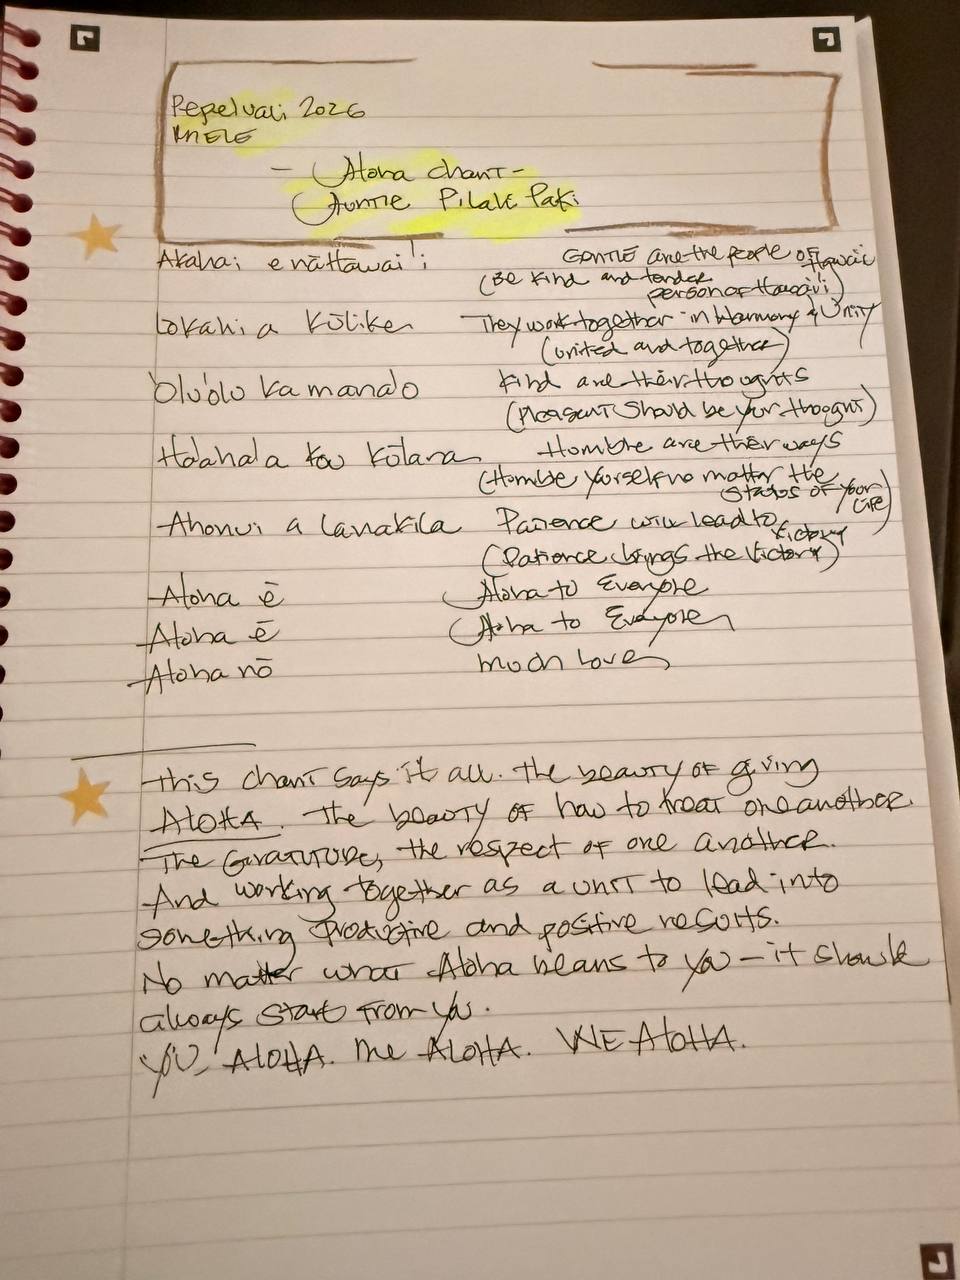 Pepeluali 2026
MELE
- Aloha chant -
Auntie Pilahi Paki
Akahai e nā Hawai'i
GENTLE are the people of Hawaii
(Be kind and tender
person of Hawai'i)
Lokahi a Kūlike
They work together in Harmony & Unity
(united and together)
'Olu'olu ka manao
Kind are their thoughts
(Pleasant should be your thought)
Ha'aha'a kou kūlana
Humble are their ways
(Humble yourself no matter the
status of your
life)
Ahonui a lanakila
Patience will lead to
victory
(Patience brings the victory)
Aloha ē
Aloha to Everyone
Aloha ē
Aloha to Everyone
Aloha nō
much Love
This chant says it all. The beauty of giving
ALOHA. The beauty of how to treat one another.
The GRATITUDE, the respect of one another.
And working together as a unit to lead into
something productive and positive results.
No matter what Aloha means to you - it should
always start from you.
YOU, ALOHA. Me ALOHA. WE ALOHA.